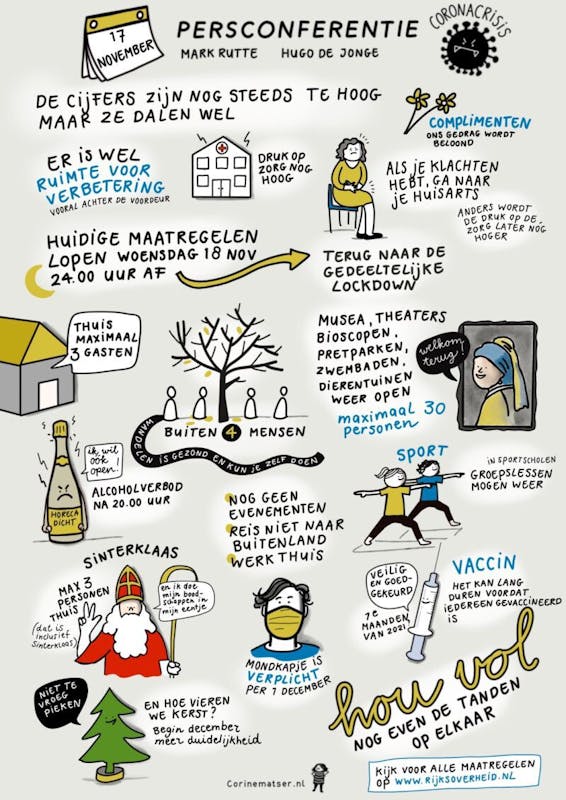 17
NOVEMBER
PERSCONFERENTIE
MARK RUTTE HUGO DE JONGE
CORONACRISIS
DE CIJFERS ZIJN NOG STEEDS TE HOOG
MAAR ZE DALEN WEL
COMPLIMENTEN
ONS GEDRAG WORDT
BELOOND
ER IS WEL
RUIMTE VOOR
VERBETERING
VOORAL ACHTER DE VOORDEUR
DRUK OP
ZORG NOG
HOOG
ALS JE KLACHTEN
HEBT, GA NAAR
JE HUISARTS
ANDERS WORDT
DE DRUK OP DE
ZORG LATER NOG
HOGER
HUIDIGE MAATREGELEN
LOPEN WOENSDAG 18 NOV
24.00 UUR AF
TERUG NAAR DE
GEDEELTELIJKE
LOCKDOWN
THUIS
MAXIMAAL
3 GASTEN
BUITEN 4 MENSEN
WANDELEN IS GEZOND EN KUN JE ZELF DOEN
MUSEA, THEATERS
BIOSCOPEN,
PRETPARKEN,
ZWEMBADEN,
DIERENTUINEN
WEER OPEN
maximaal 30
personen
welkom
terug!
ik wil
óók
open!
HORECA
DICHT
ALCOHOLVERBOD
NA 20.00 UUR
NOG GEEN
EVENEMENTEN
REIS NIET NAAR
BUITENLAND
WERK THUIS
SPORT
IN SPORTSCHOLEN
GROEPSLESSEN
MOGEN WEER
SINTERKLAAS
MAX 3
PERSONEN
THUIS
(dat is
inclusief
Sinterklaas)
en ik doe
mijn bood-
schappen in
mijn eentje
MONDKAPJE IS
VERPLICHT
PER 1 DECEMBER
VEILIG
EN GOED-
GEKEURD
1e
MAANDEN
VAN 2021
VACCIN
HET KAN LANG
DUREN VOORDAT
IEDEREEN GEVACCINEERD
IS
NIET TE
VROEG
PIEKEN
EN HOE VIEREN
WE KERST?
Begin december
meer duidelijkheid
hou vol
NOG EVEN DE TANDEN
OP ELKAAR
KIJK VOOR ALLE MAATREGELEN
OP WWW.RIJKSOVERHEID.NL
Corinematser.nl